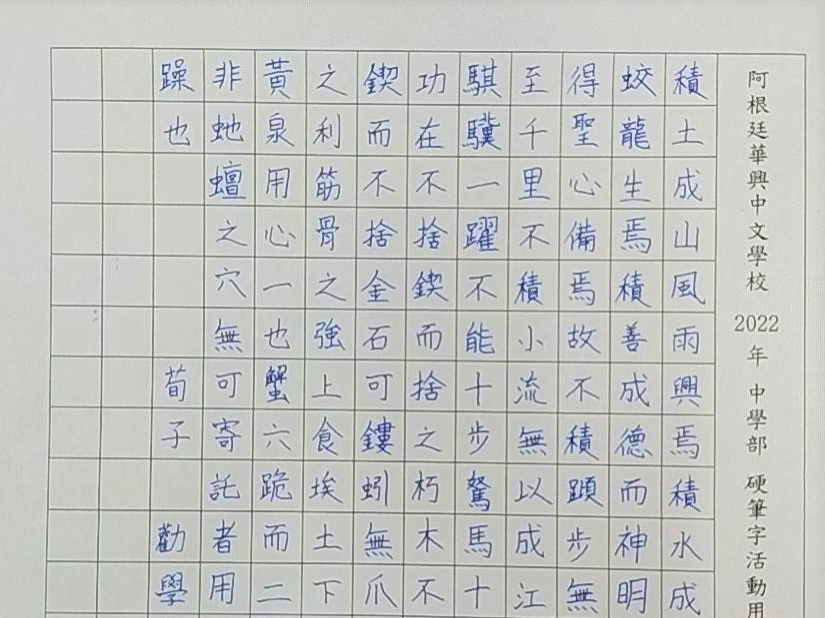 阿根廷華興中文學校 2022 年 中學部 硬筆字活動用
積土成山風雨興焉積水成
蛟龍生焉積善成德而神明
得聖心備焉故不積蹞步無
至千里不積小流無以成江
騏驥一躍不能十步駑馬十
功在不捨鍥而捨之朽木不
鍥而不捨金石可鏤蚓無爪
之利筋骨之強上食埃土下
黃泉用心一也蟹六跪而二
非虵蟺之穴無可寄託者用
躁也 荀子 勸學